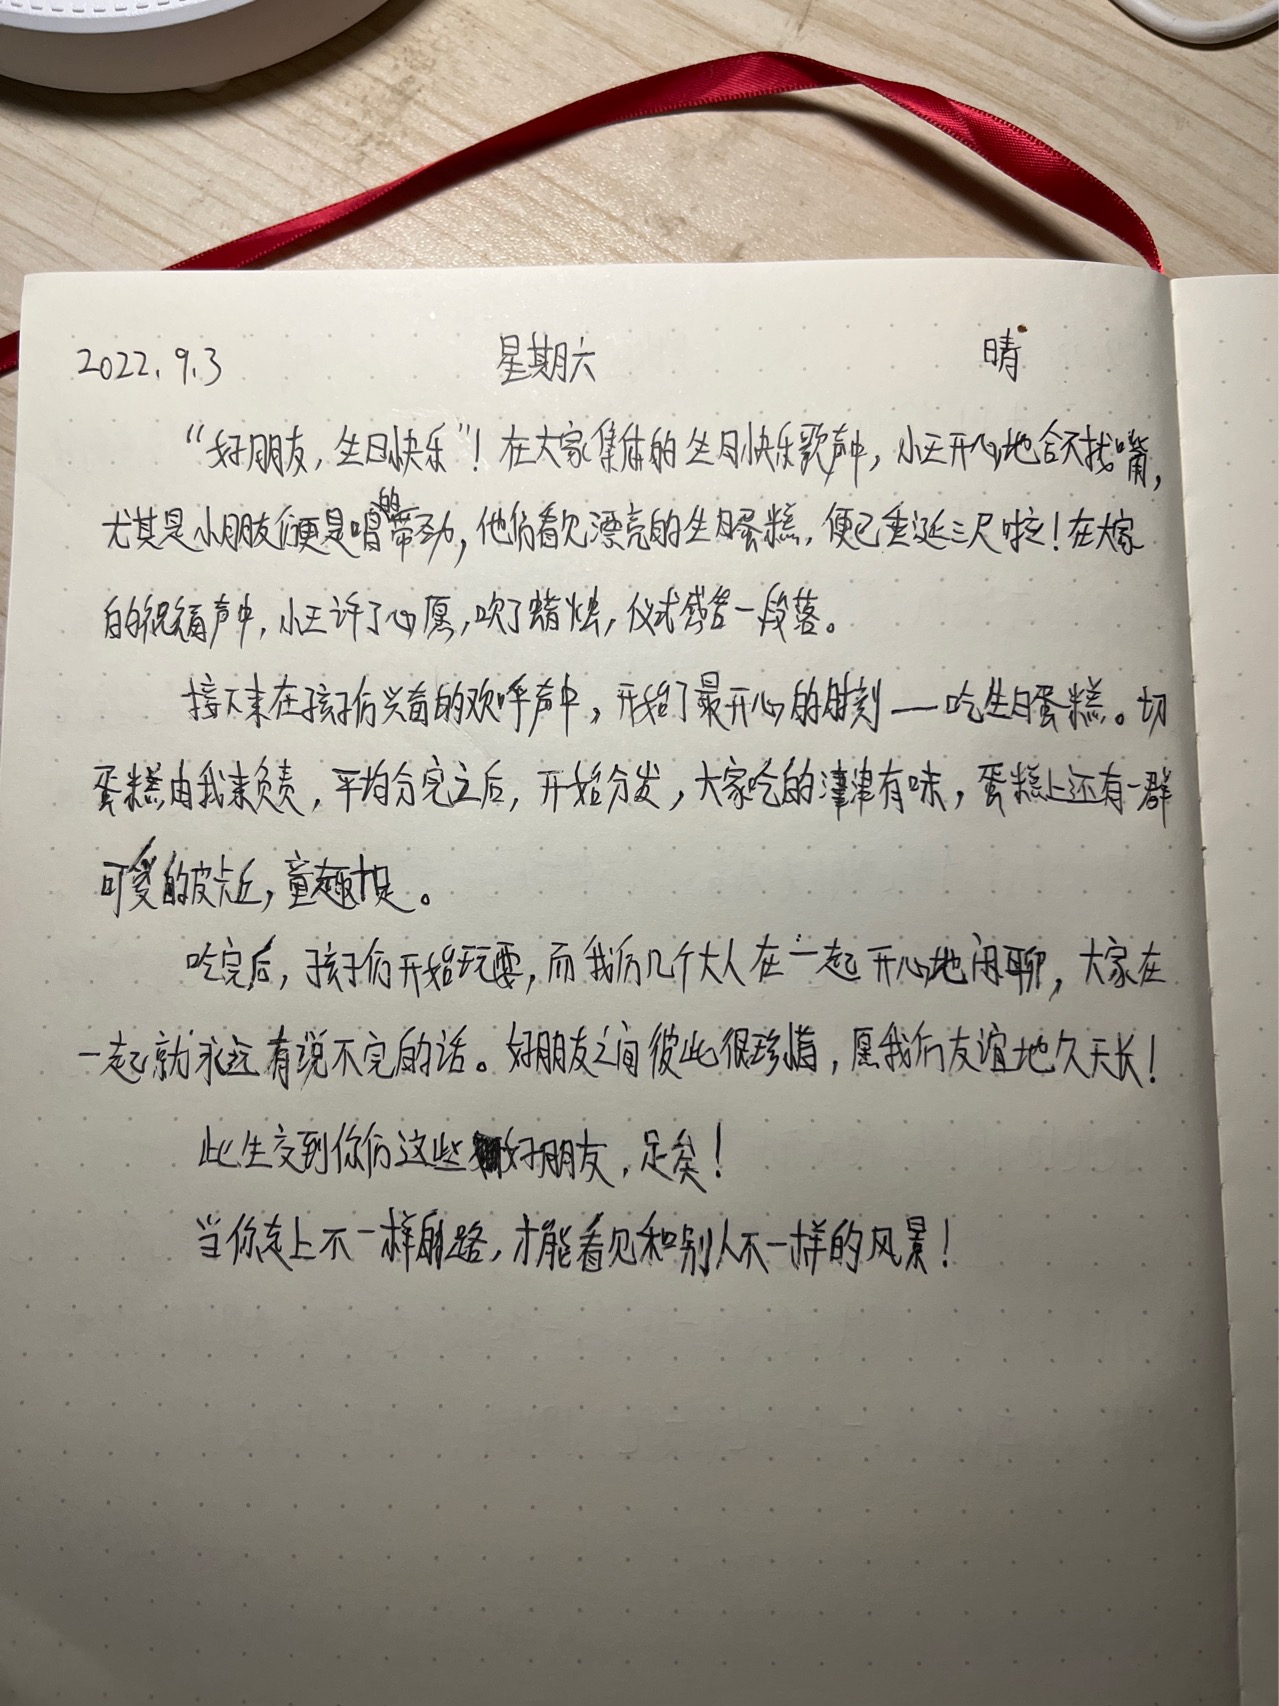 2022.9.3 星期六 晴
“好朋友，生日快乐”！在大家集体的生日快乐歌声中，小王开心地合不拢嘴，
尤其是小朋友们更是唱的带劲，他们看见漂亮的生日蛋糕，便已垂涎三尺啦！在大家
的祝福声中，小王许了心愿，吹了蜡烛，仪式感告一段落。
接下来在孩子们兴奋的欢呼声中，开始了最开心的时刻——吃生日蛋糕。切
蛋糕由我来负责，平均分完之后，开始分发，大家吃的津津有味，蛋糕上还有一群
可爱的皮卡丘，童趣十足。
吃完后，孩子们开始玩耍，而我们几个大人在一起开心地闲聊，大家在
一起就永远有说不完的话。好朋友之间彼此很珍惜，愿我们友谊地久天长！
此生交到你们这些好朋友，足矣！
当你走上不一样的路，才能看见和别人不一样的风景！